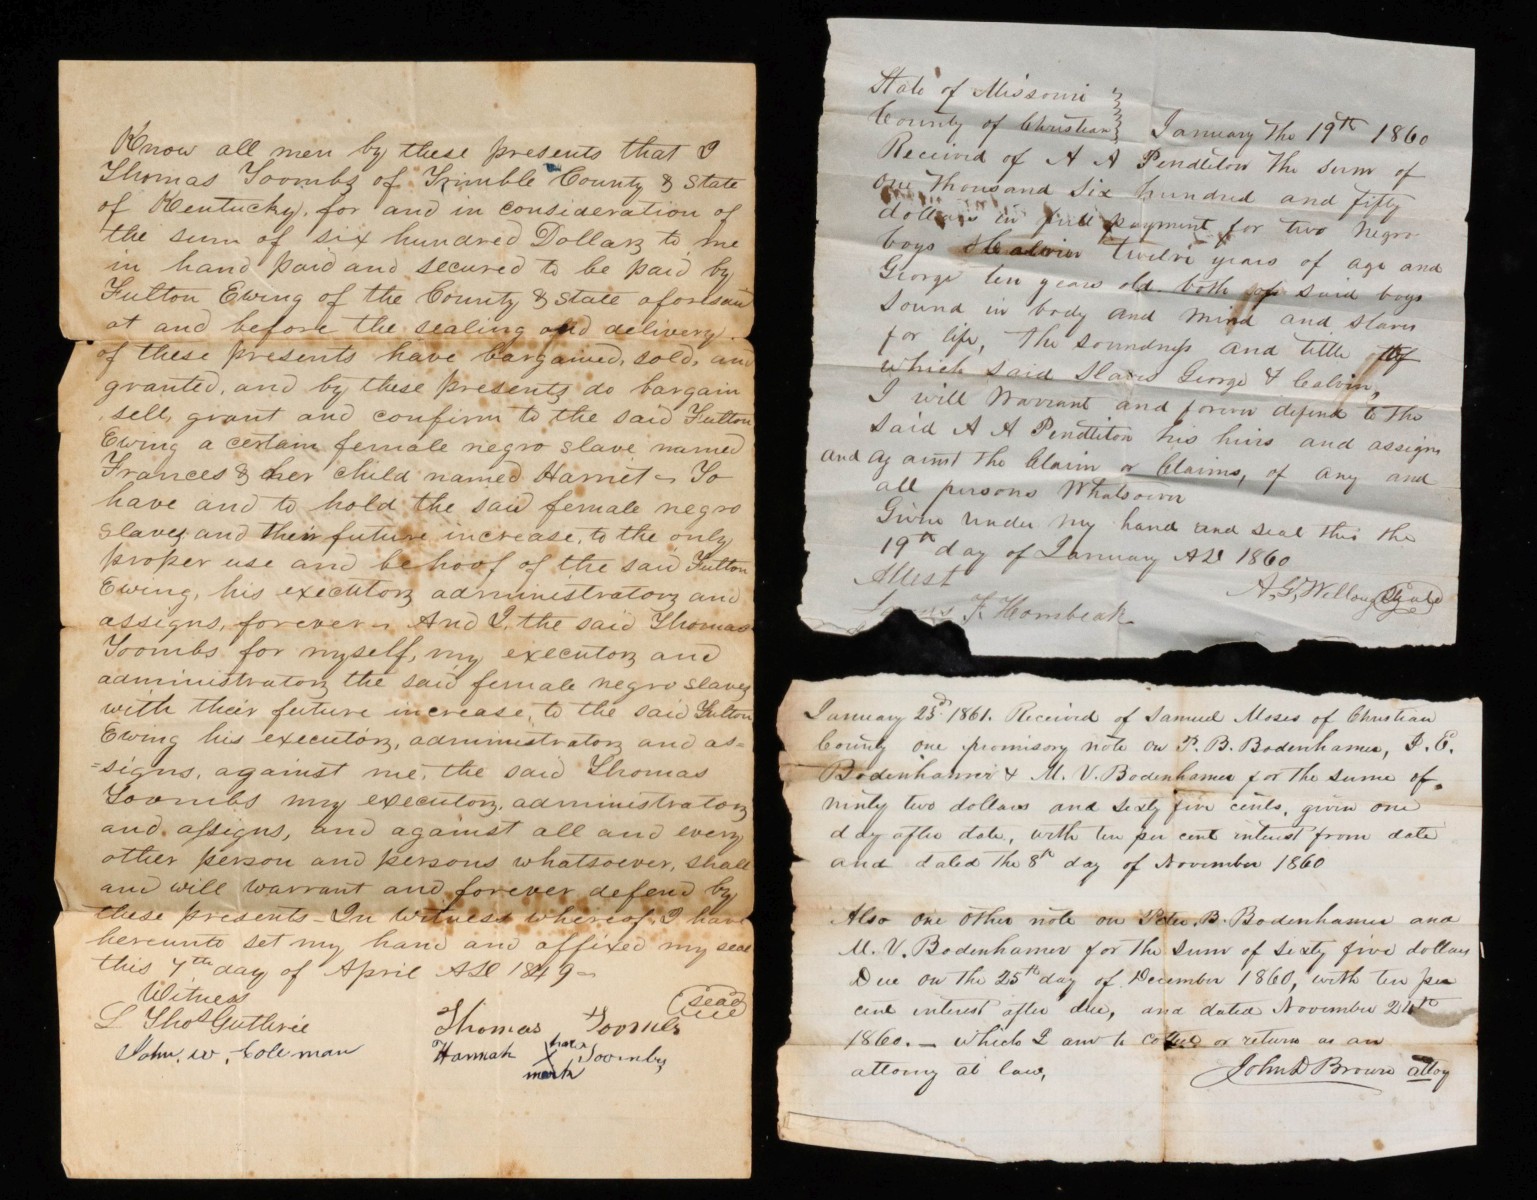 Know all men by these presents that I
Thomas Toombs of Trimble County & State
of Kentucky, for and in consideration of
the sum of six hundred Dollars to me
in hand paid and secured to be paid by
Fulton Ewing of the County & State aforesaid
at and before the sealing and delivery
of these presents have bargained, sold, and
granted, and by these presents do bargain
sell, grant and confirm to the said Fulton
Ewing a certain female negro slave named
Frances & her child named Harriet - To
have and to hold the said female negro
slaves and their future increase, to the only
proper use and behoof of the said Fulton
Ewing, his executors administrators and
assigns, forever - And I, the said Thomas
Toombs for myself, my executors and
administrators the said female negro slaves
with their future increase, to the said Fulton
Ewing his executors, administrators and as=
=signs, against me, the said Thomas
Toombs my executors, administrators
and assigns, and against all and every
other person and persons whatsoever, shall
and will warrant and forever defend by
these presents - In witness whereof I have
hereunto set my hand and affixed my seal
this 7th day of April AD 1849 -
Witness
L Thos Guthrie
John. W. Coleman
seal
Thomas Toombs
Hannah her X mark Toombs
State of Missouri
County of Christian } January The 19th 1860
Received of A A Pendleton the sum of
one thousand Six hundred and fifty
dollars in full payment for two Negro
boys Calvin twelve years of age and
George ten years old. both of said boys
Sound in body and mind and slaves
for life, The soundness and title of
which said Slaves George & Calvin,
I will Warrant and forever defend to the
said A A Pendleton his heirs and assigns
and against the Claim or Claims, of any and
all persons Whatsoever
Given under my hand and seal this the
19th day of January AD 1860
Attest
A. G. Willoughby Seal
F. Hornbeak
January 23d 1861. Received of Samuel Moses of Christian
County one promisory note on P. B. Bodenhamer, J. E.
Bodenhamer & M. V. Bodenhamer for the sume of
ninty two dollars and sixty five cents, given one
day after date, with ten per cent interest from date
and dated the 8th day of November 1860
Also one other note on Peter. B. Bodenhamer and
M. V. Bodenhamer for the Sum of Sixty five dollars
Due on the 25th day of December 1860, with ten per
cent interest after due, and dated November 24th
1860. - which I am to collect or return as an
attorny at law,
John D Brown attoy